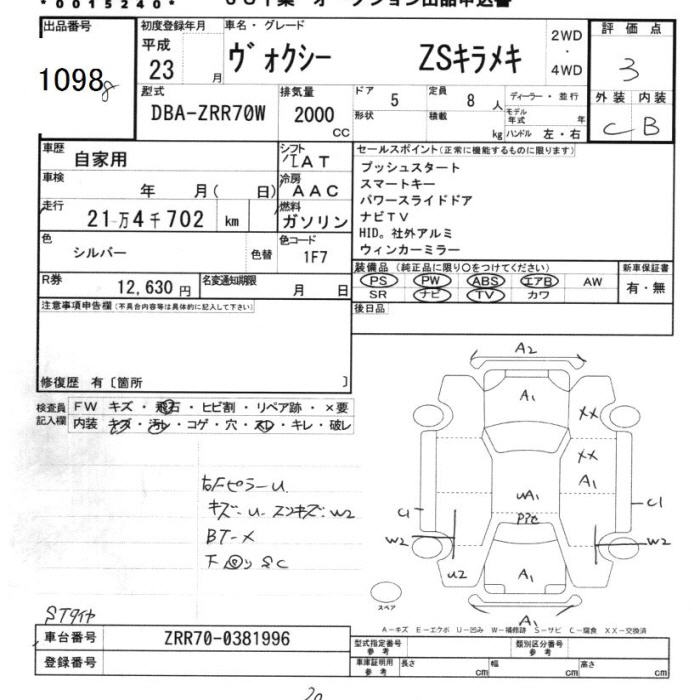 *0015240*
出品番号 初度登録年月 車名・グレード 2WD・4WD 評価点
1098 平成 23 月 ヴォクシー ZSキラメキ 3
型式 DBA-ZRR70W 排気量 2000 cc ドア 5 定員 8 人 ディーラー・並行 外装 内装
形状 積載 kg モデル年式 年 C B
ハンドル 左・右
車歴 自家用 シフト IAT セールスポイント(正常に機能するものに限ります)
車検 年 月( 日) 冷房 AAC プッシュスタート
スマートキー
走行 21万4千702 km 燃料 ガソリン パワースライドドア
ナビTV
色 シルバー 色替 色コード 1F7 HID。社外アルミ
ウィンカーミラー
R券 12,630円 名変通知期限 月 日 装備品(純正品に限り○をつけてください) 新車保証書
PS PW ABS エアB AW 有・無
SR ナビ TV カワ
注意事項申告欄(不具合内容等は具体的に記入して下さい) 後日品
修復歴 有〔箇所 〕
検査員記入欄 FW キズ・飛石・ヒビ割・リペア跡・×要
内装 キズ・汚レ・コゲ・穴・スレ・キレ・破レ
A2
A1
XX
XX
A1
右Fピラー U
キズ・U・スンキズ・W2
BT-X
uA1
U1
C1
W2
W2
U2
A1
スペア
A1
STタイヤ
A-キズ E-エクボ U-凹み W-補修跡 S-サビ C-腐食 XX-交換済
車台番号 ZRR70-0381996 型式指定番号 参考 類別区分番号 参考
登録番号 車庫証明用 参考 長さ cm 幅 cm 高さ cm
20